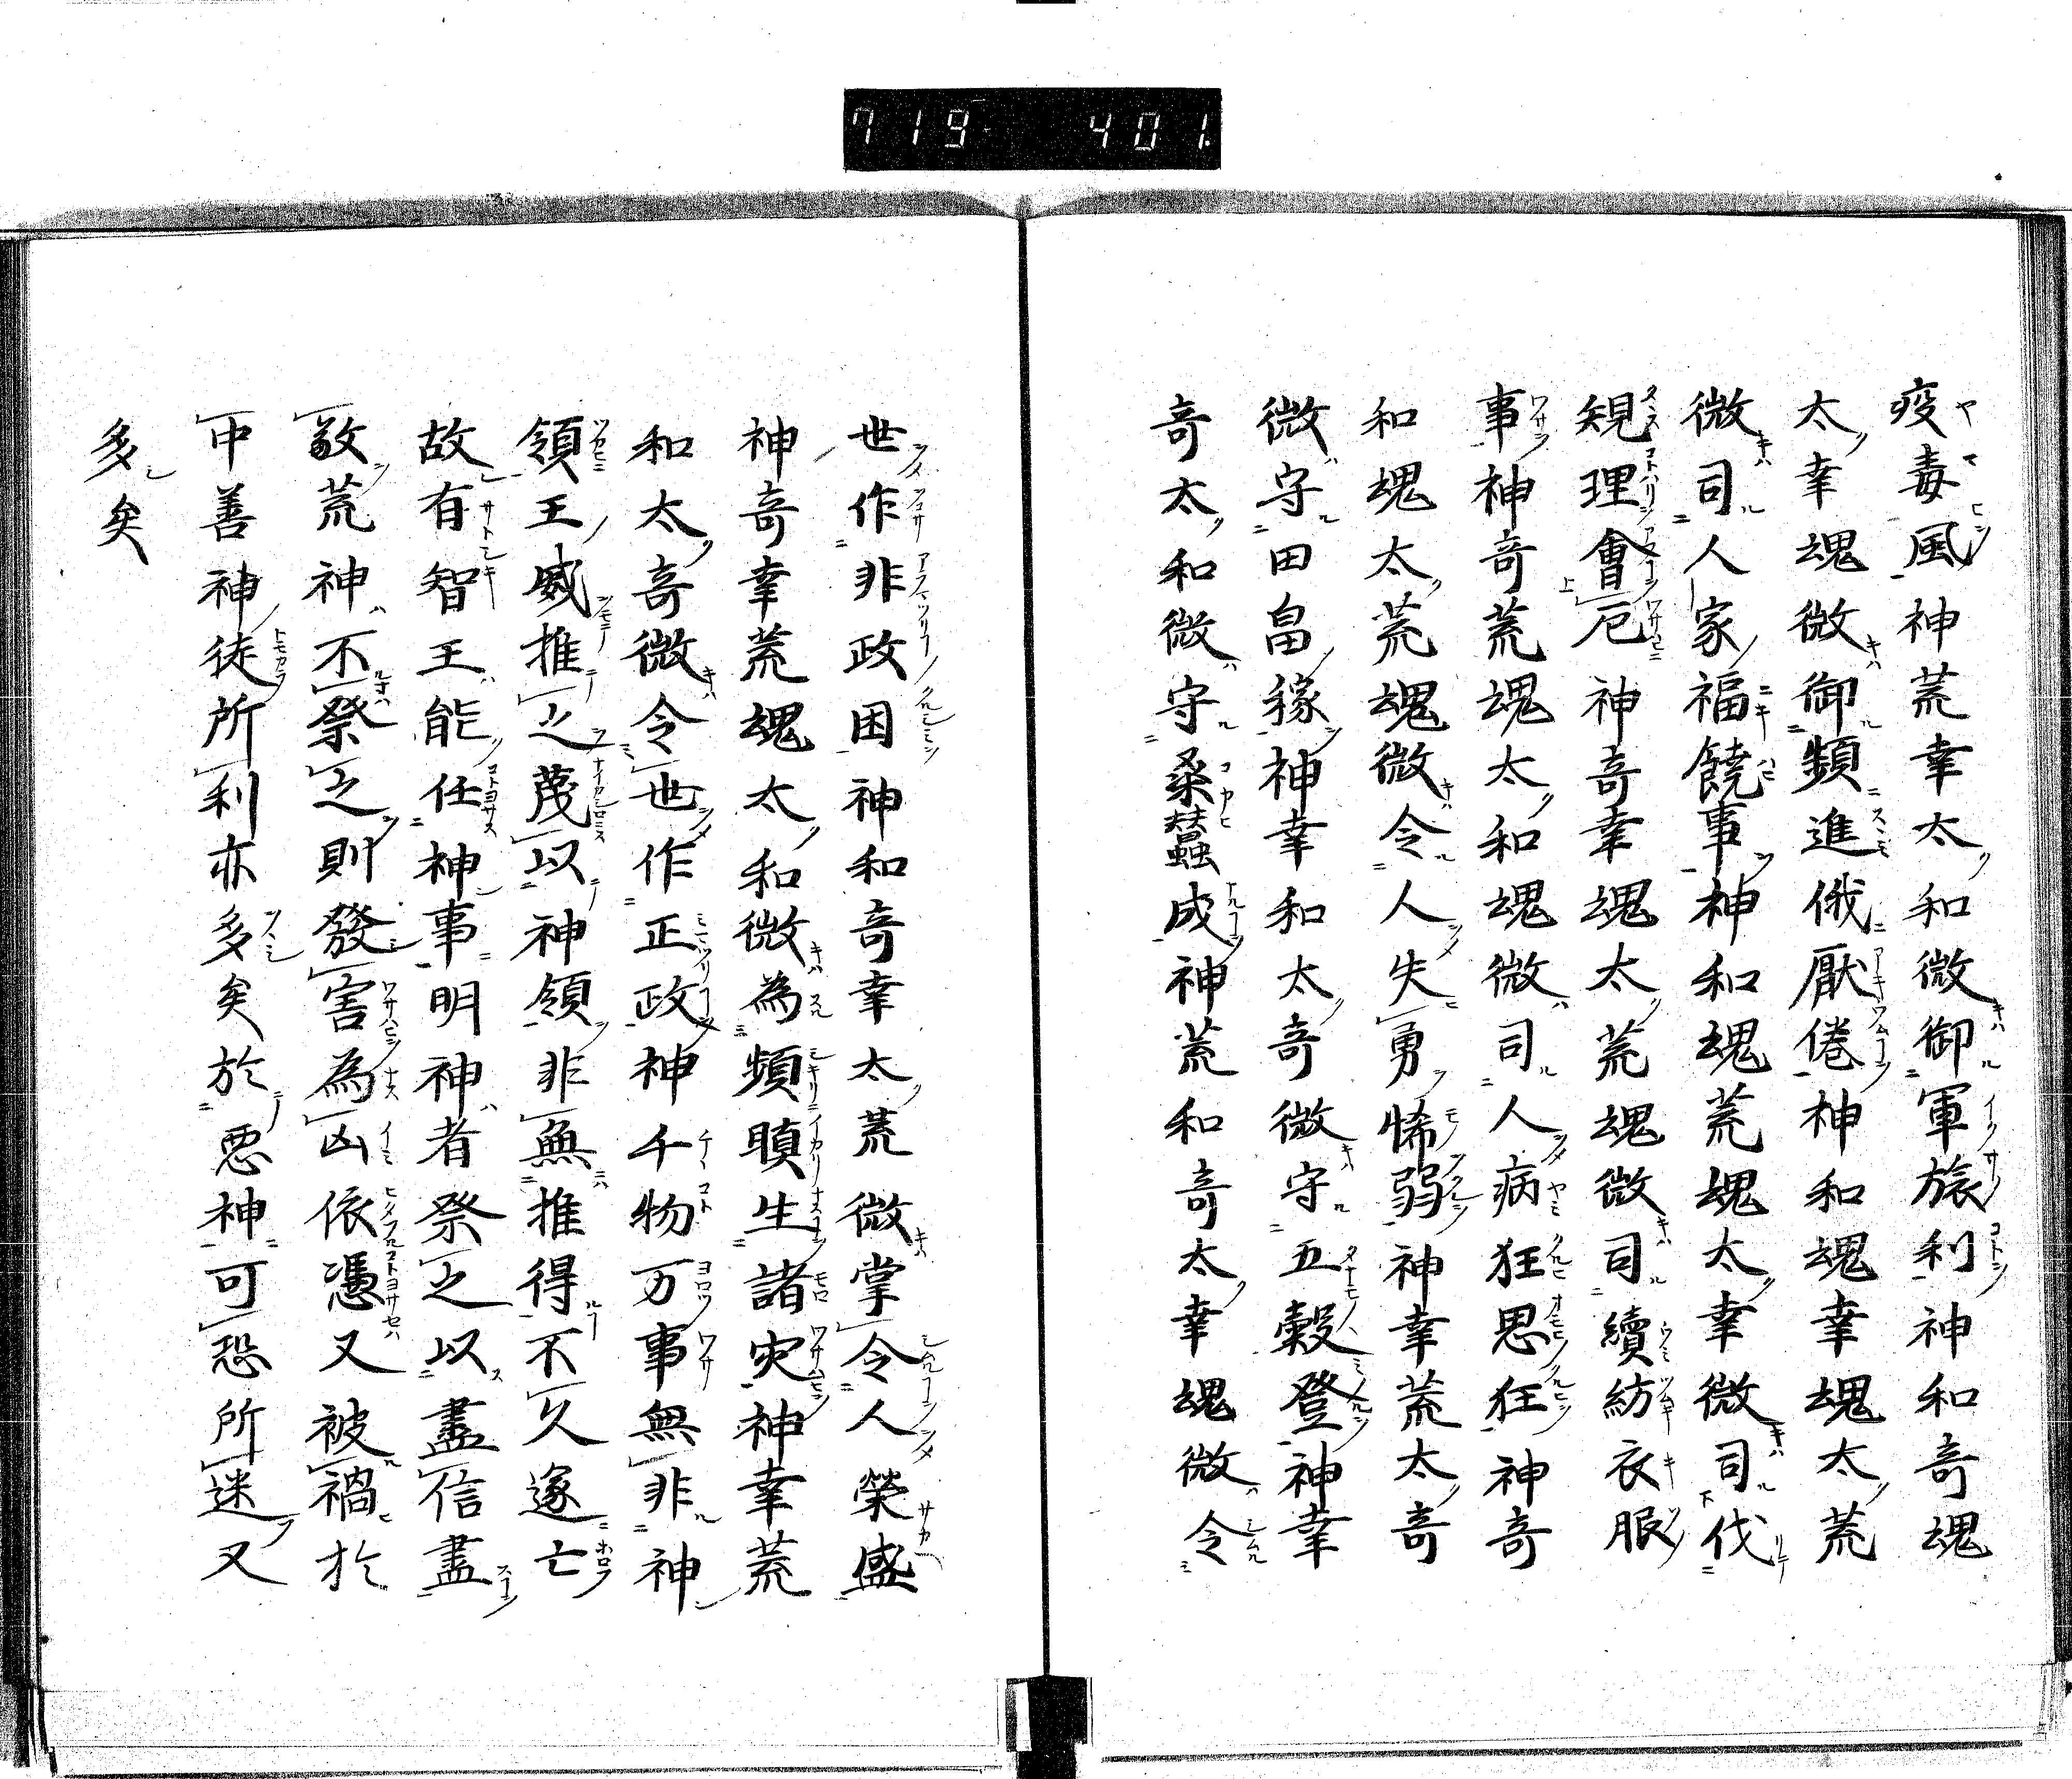 719 401.
疫毒風神荒幸太和微御軍旅利神和奇魂
太幸魂微御頻進俄厭倦神和魂幸魂太荒
微司人家福饒事神和魂荒魂太幸微司伐
規理會厄神奇幸魂太荒魂微司續紡衣服
事神奇荒魂太和魂微司人病狂思狂神奇
和魂太荒魂微令人失勇悕弱神幸荒太奇
微守田畠稼神幸和太奇微守五穀登神幸
奇太和微守桑蠶成神荒和奇太幸魂微令
世作非政困神和奇幸太荒微掌令人榮盛
神奇幸荒魂太和微為頻瞋生諸灾神幸荒
和太奇微令世作正政神千物万事無非神
領王威推之蔑以神領非無推得不久遂亡
故有智王能任神事明神者祭之以盡信盡
敬荒神不祭之則發害為凶依憑又被禍於
中善神徒所利亦多矣於悪神可恐所迷又
多矣